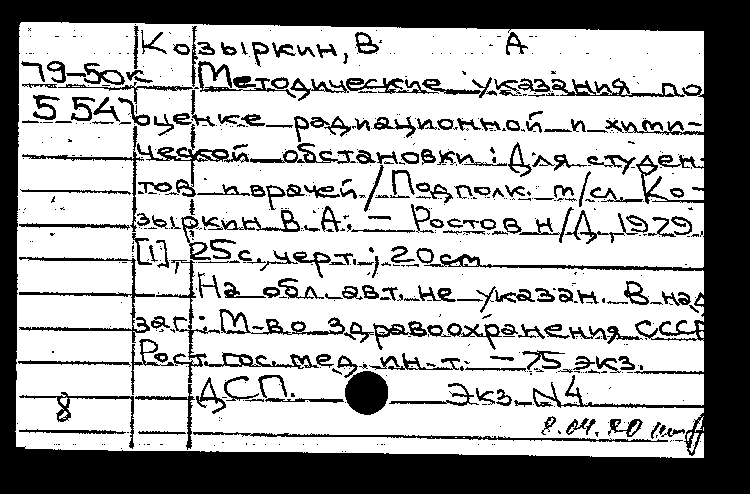 Козыркин, В А
79-50к Методические указания по
5 547 оценке радиационной и хими-
ческой обстановки: Для студен-
тов и врачей / Подполк. м/сл. Ко-
зыркин В. А. – Ростов н/Д, 1979.
[1], 25 с., черт.; 20 см
На обл. авт. не указан. В над
заг.: М-во здравоохранения СССР
Рост. гос. мед. ин-т. – 75 экз.
ДСП. Экз. N4.
8
8.04.80